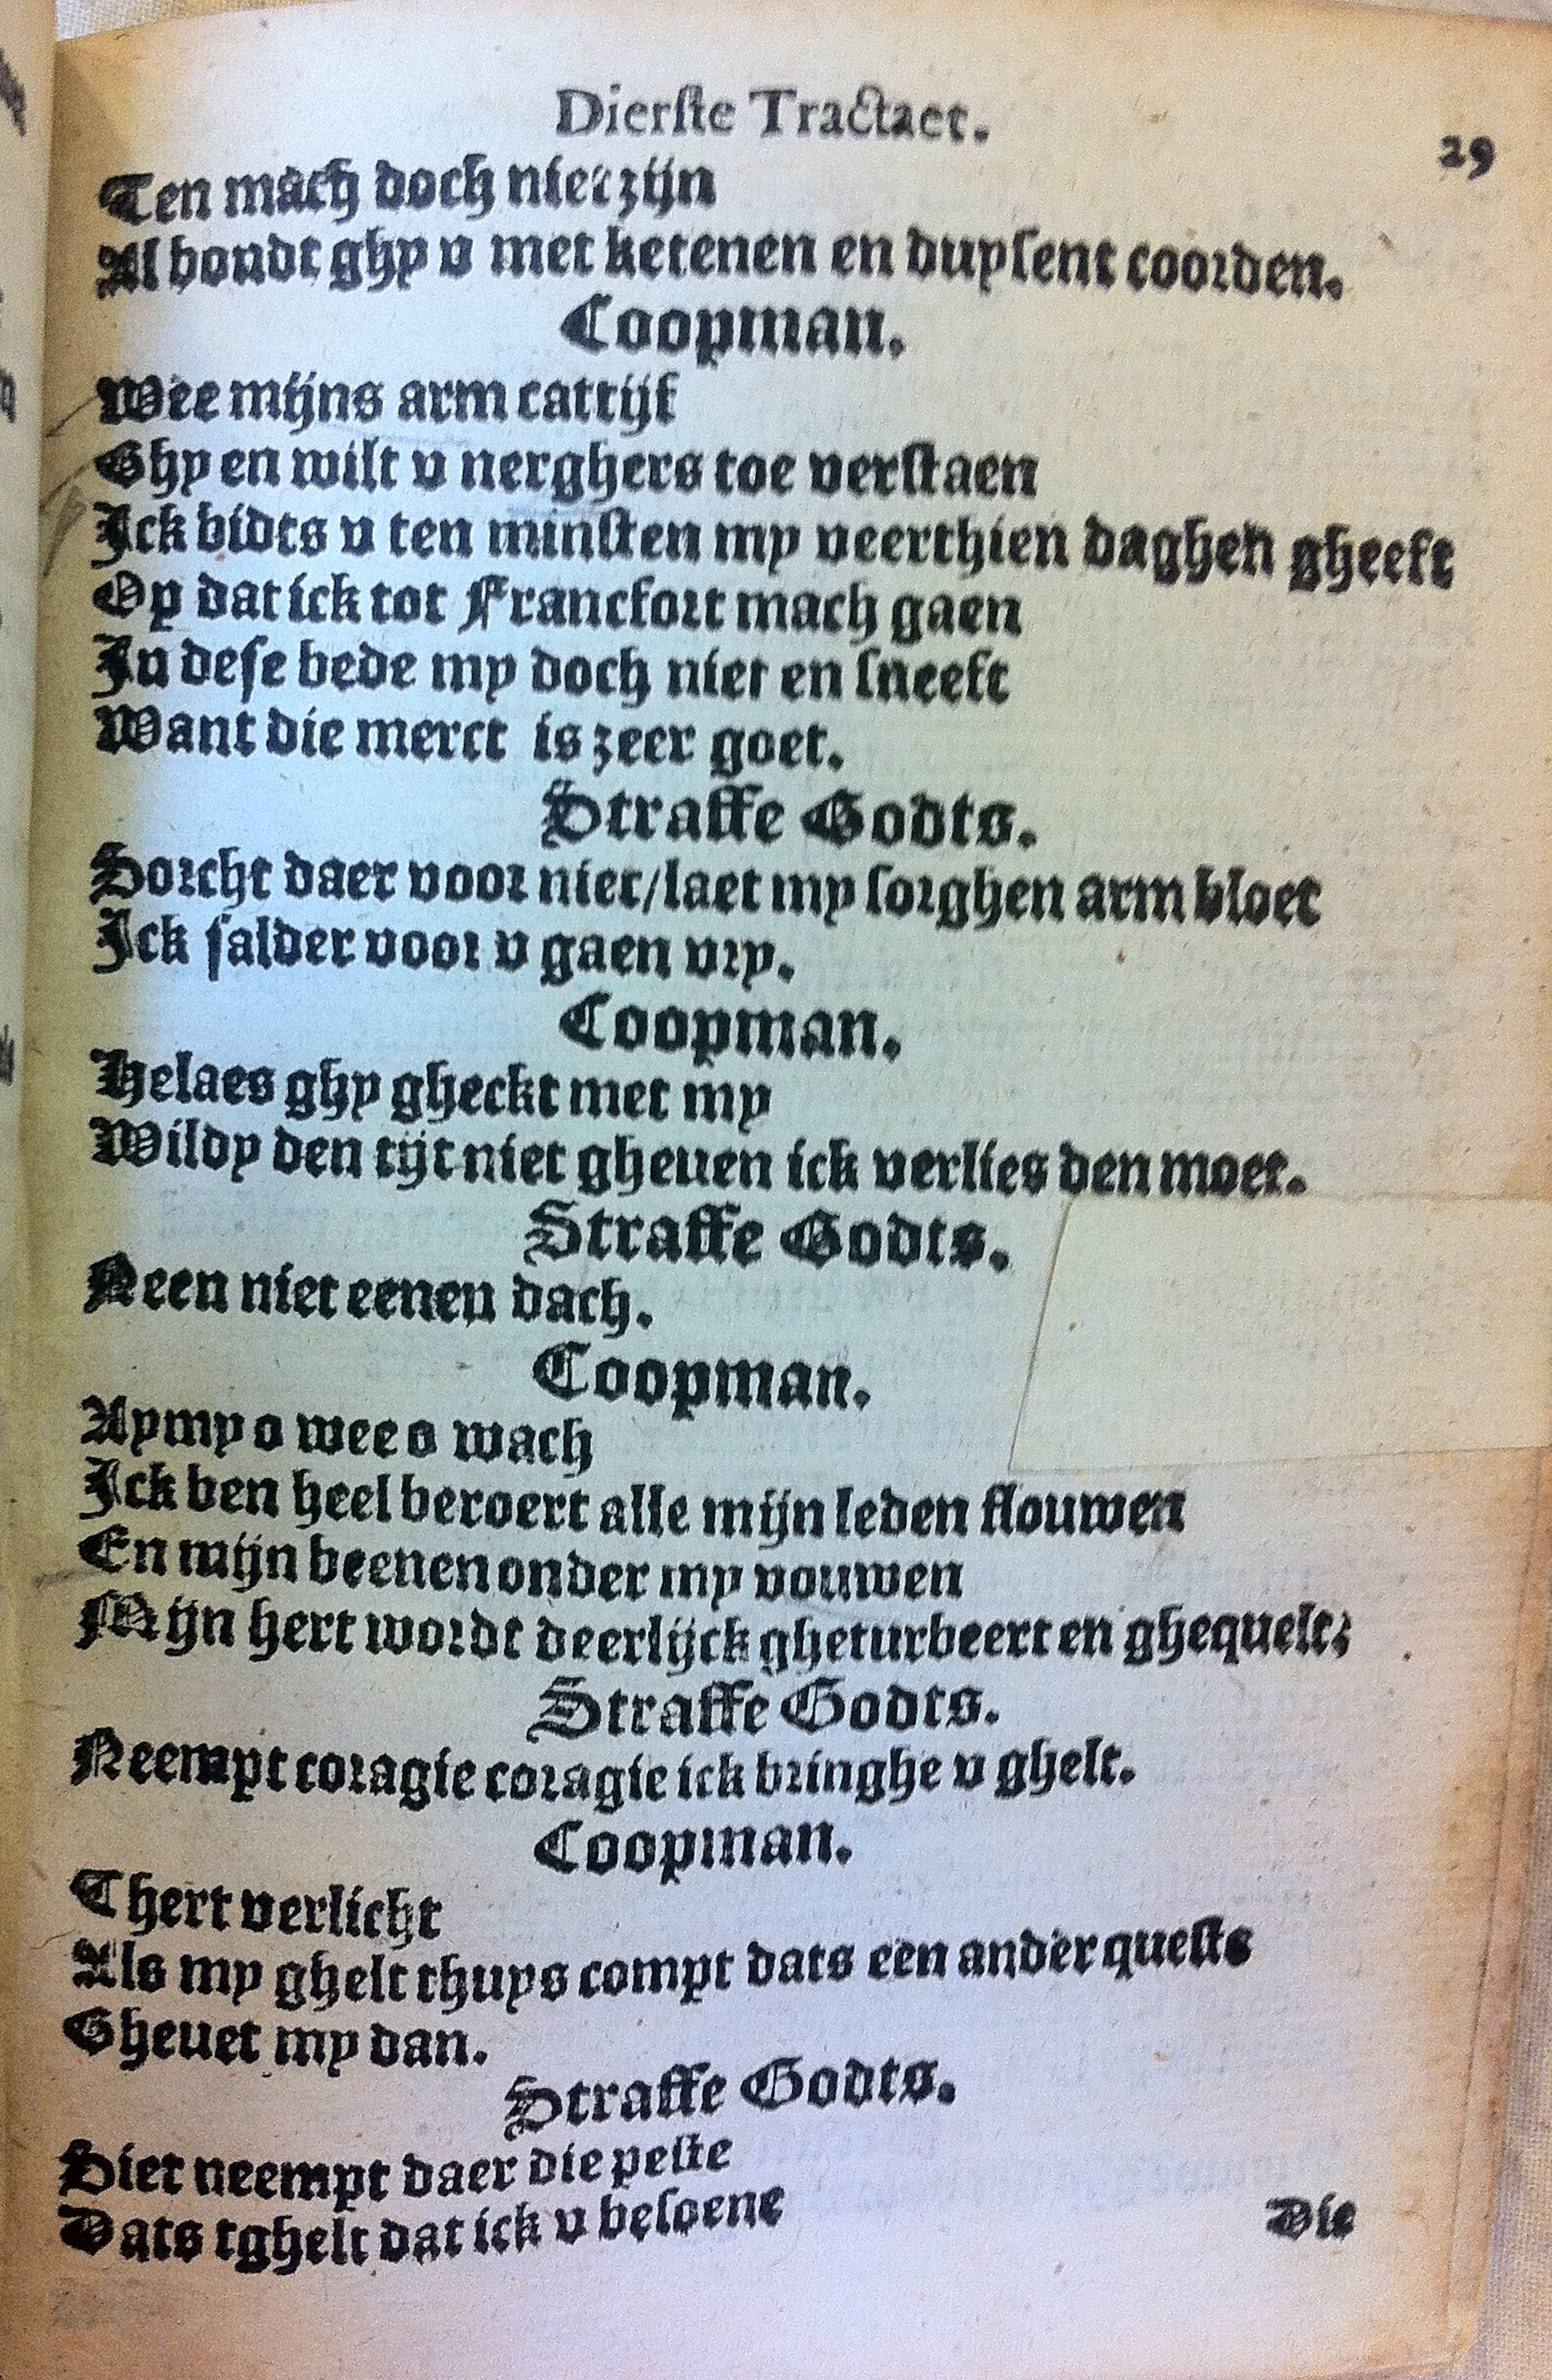 Dierste Tractaet.
29
Ten mach doch niet zijn
Al bondt ghy v met ketenen en duysent coorden.
Coopman.
Wee mijns arm cattijf
Ghy en wilt v nerghers toe verstaen
Ick bidts v ten minsten my veerthien daghen gheeft
Op dat ick tot Francfort mach gaen
In dese bede my doch niet en sneeft
Want die merct is zeer goet.
Straffe Godts.
Sorcht daer voor niet/laet my sorghen arm bloet
Ick salder voor v gaen vry.
Coopman.
Helaes ghy gheckt met my
Wildy den tijt niet gheuen ick verlies den moet.
Straffe Godts.
Neen niet eenen dach.
Coopman.
Aymy o wee o wach
Ick ben heel beroert alle mijn leden flouwen
En mijn beenen onder my vouwen
Mijn hert wordt deerlijck gheturbeert en ghequelt;
Straffe Godts.
Neempt coragie coragie ick bringhe v ghelt.
Coopman.
Thert verlicht
Als my ghelt thuys compt dats een ander queste
Gheuet my dan.
Straffe Godts.
Siet neempt daer die peste
Dats tghelt dat ick v besoene
Die